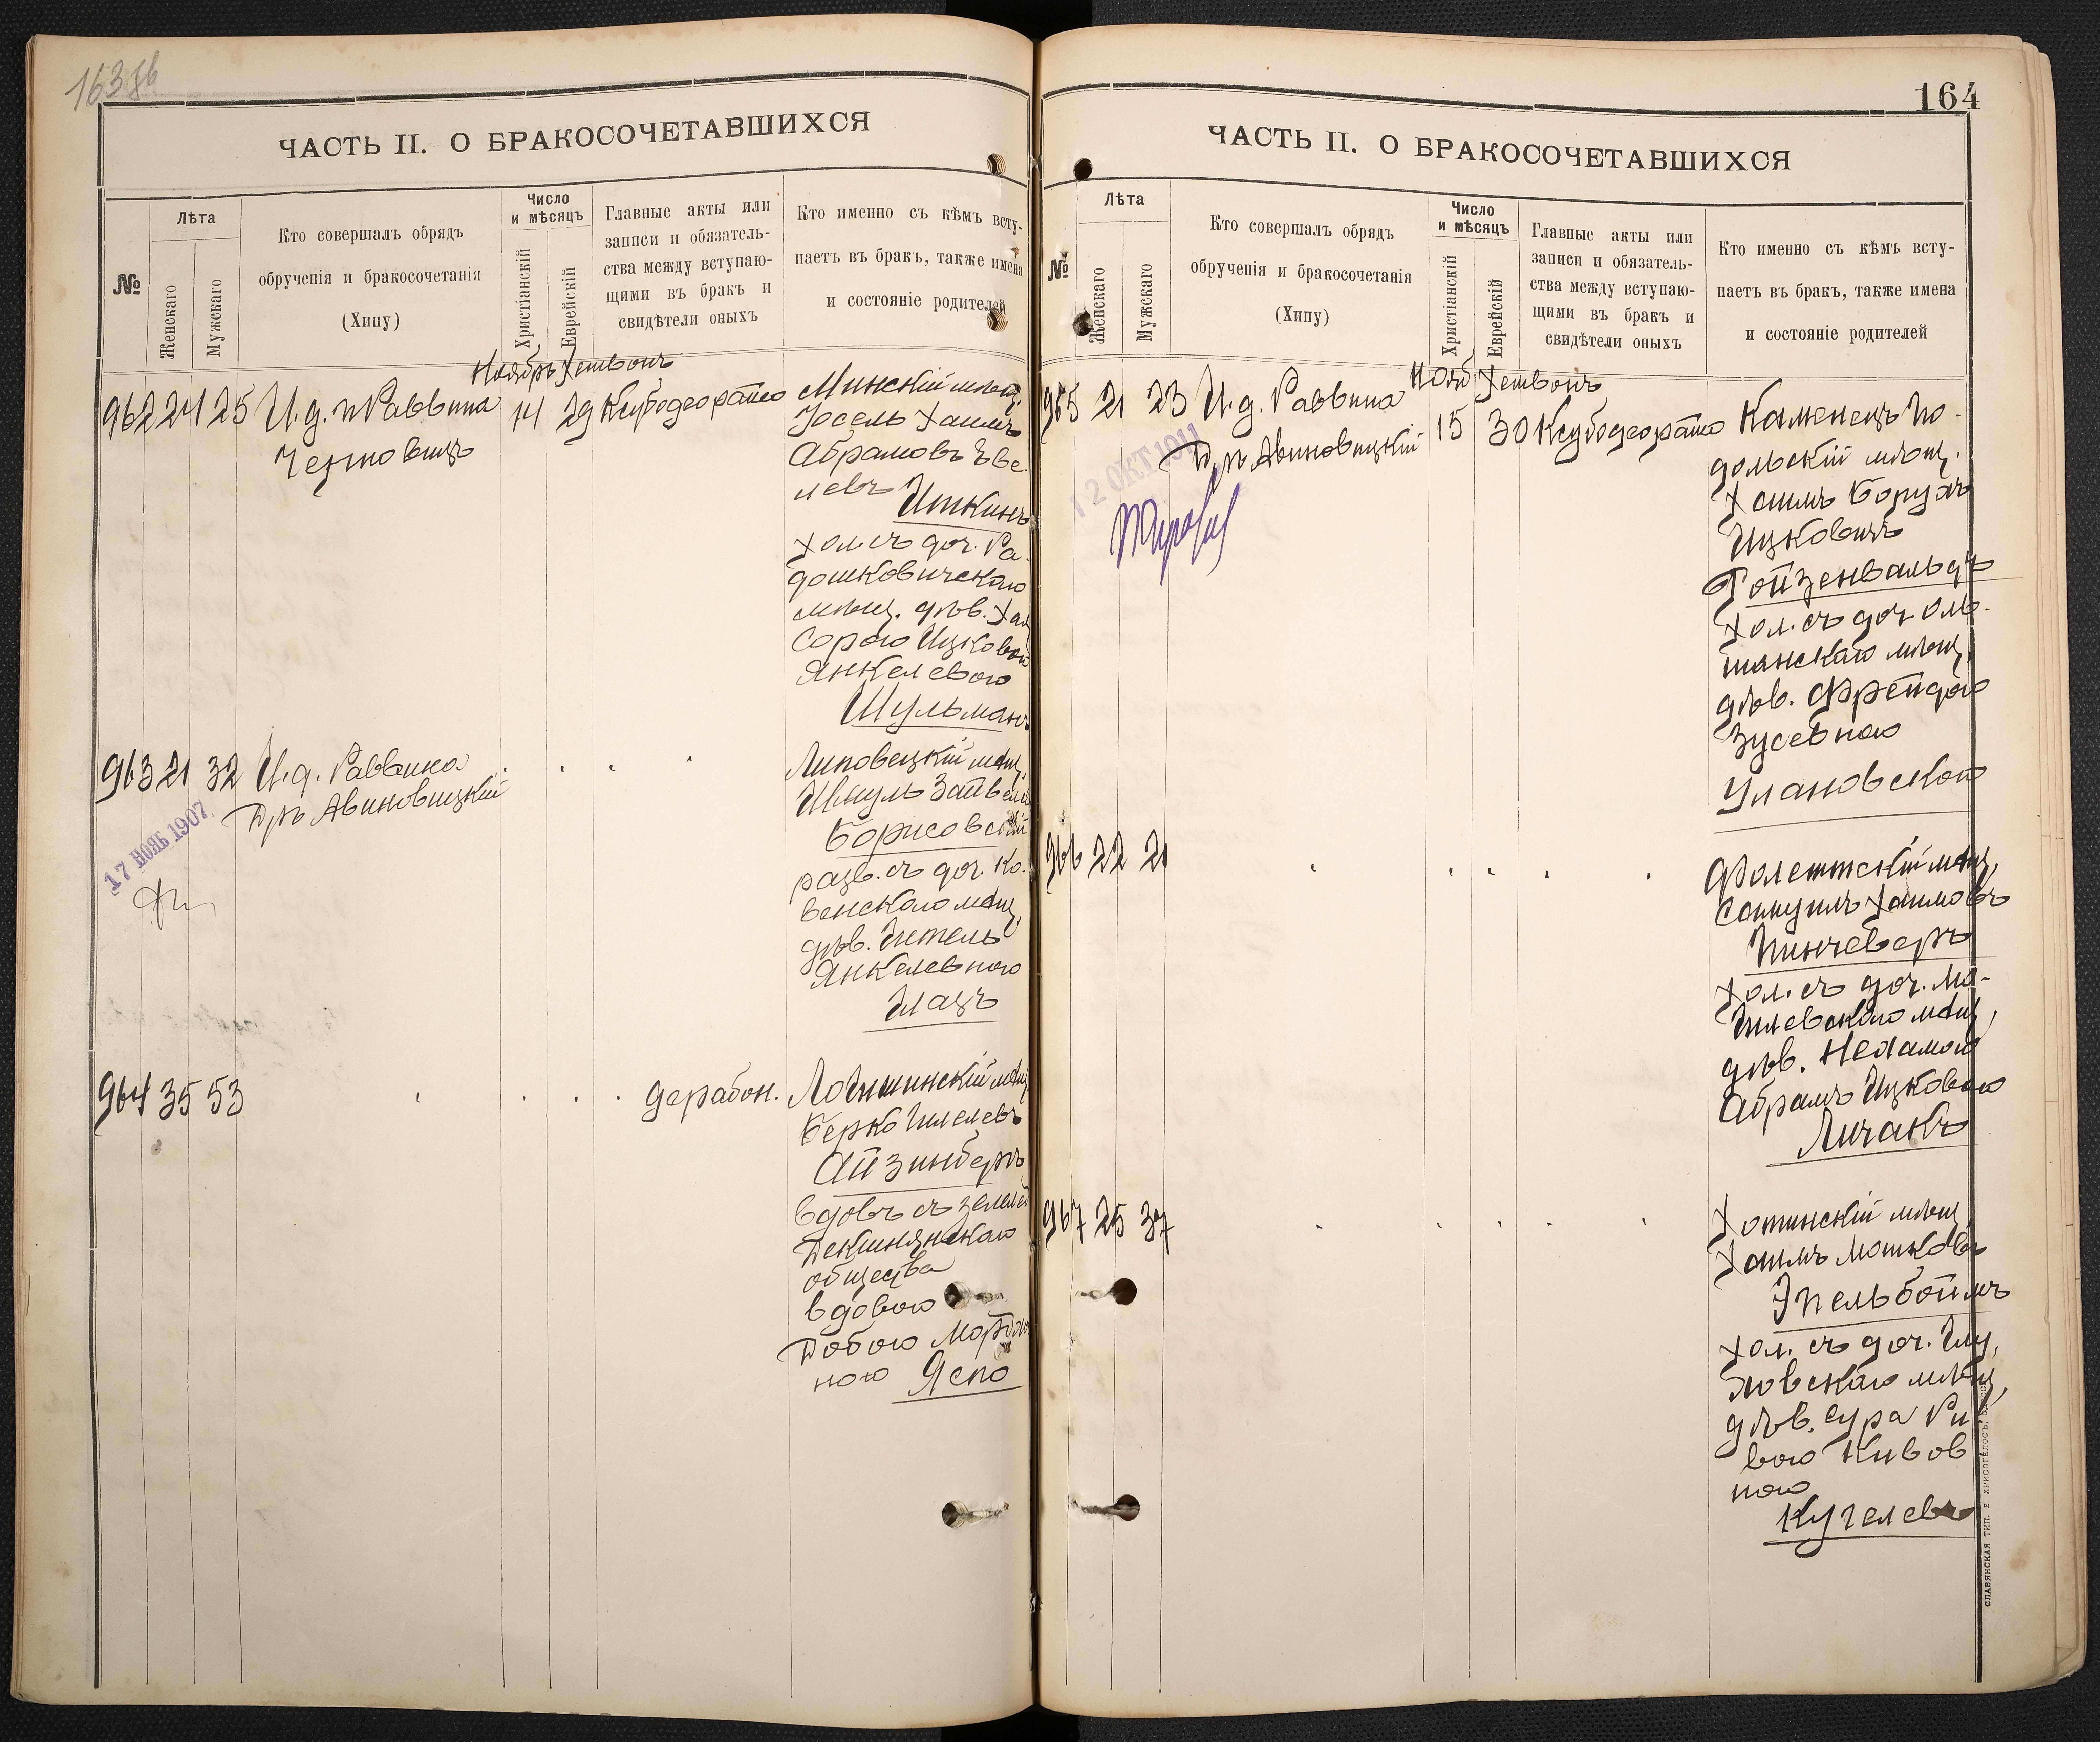 163 об
ЧАСТЬ II. О БРАКОСОЧЕТАВШИХСЯ
№
Лѣта
Женскаго
Мужскаго
Кто совершалъ обрядъ
обрученія и бракосочетанія
(Хипу)
Число
и мѣсяцъ
Христіанскій
Еврейскій
Главные акты или
записи и обязатель-
ства между вступаю-
щими въ бракъ и
свидѣтели оныхъ
Кто именно съ кѣмъ всту-
паетъ въ бракъ, также имена
и состояніе родителей
Ноябрь Хешвонъ
962 24 25 И.д. Раввина
14 29 Ксубодеорайсо
Минскій мѣщ.
Іосель Хаимъ
Абрамовъ Эве-
левъ Иткинъ
хол. съ доч. Ра-
дошковичскаго
мѣщ. дѣв. Хая
Сорою Ицковой
Янкелевою
Шульманъ
963 21 32 И.д. Раввина
Д-ръ Авиновицкій
17 НОЯБ 1907
Липовецкій мѣщ.
Шмуль Зайвель
Борисовскій
разв. съ доч. Ко-
венскаго мѣщ.
дѣв. Гитель
Янкелевною
Глазъ
964 35 53
дерабон.
Логишинскій мѣщ
Берко Гилелевъ
Айзинбергъ
вдовъ съ
общества
вдовою
Добою
ною Яспо
164
ЧАСТЬ II. О БРАКОСОЧЕТАВШИХСЯ
№
Лѣта
Женскаго
Мужскаго
Кто совершалъ обрядъ
обрученія и бракосочетанія
(Хипу)
Число
и мѣсяцъ
Христіанскій
Еврейскій
Главные акты или
записи и обязатель-
ства между вступаю-
щими въ бракъ и
свидѣтели оныхъ
Кто именно съ кѣмъ всту-
паетъ въ бракъ, также имена
и состояніе родителей
Нояб Хешвонъ
965 21 23 И.д. Раввина
Д-ръ Авиновицкій
15 30 Ксубодеорайсо
12 ОКТ 1911
Каменецъ По-
дольскій мѣщ.
Хаимъ Борухъ
Ицковичъ
Гойзенвальдъ
хол. съ доч. Оль-
шанскаго мѣщ.
дѣв. Фрейдою
Зусевною
Улановской
966 22 21
Фолештскій мѣщ,
Самуилъ Хаимовъ
Пинчеверъ
хол. съ доч. Мо-
гилевскаго мѣщ,
дѣв. Нехамою
Абрамъ Ицковою
Личакъ
967 25 37
Хотинскій мѣщ
Хаимъ Мошковъ
Эпельбоймъ
хол. съ доч. Глу-
ховскаго мѣщ,
дѣв. Сура Ри
вою Кивов
ною
Кугелевъ
СЛАВЯНСКАЯ ТИП. Е. ХРИСОГЕЛОСЪ,